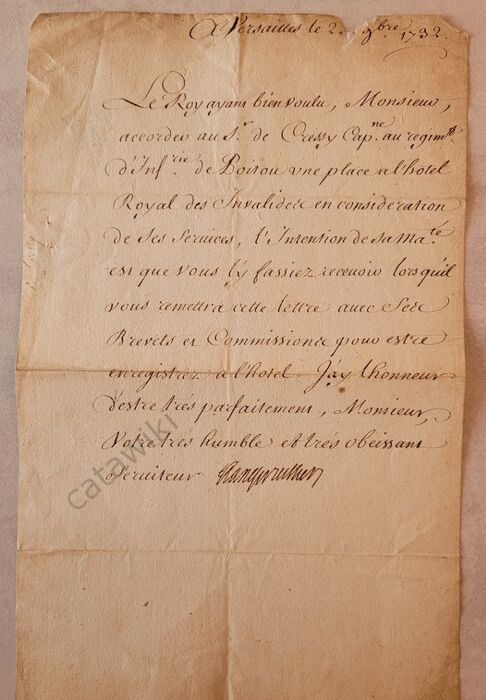 a Versailles le 2. 9bre 1732.
Le Roy ayant bien voulu, Monsieur,
accorder au Sr. de Cressy Capne. au regimt.
d'Infrie. de Poitou une place a l'hotel
Royal des Invalides en consideration
de Ses Services, l'Intention de sa Maté.
est que vous l'y fassiez recevoir lorsqu'il
vous remettra cette lettre avec Ses
Brevets et Commissions pour estre
enregistrez a l'hotel. J'ay l'honneur
d'estre trés parfaitement, Monsieur,
Votre trés humble et trés obeissant
Serviteur
catawiki